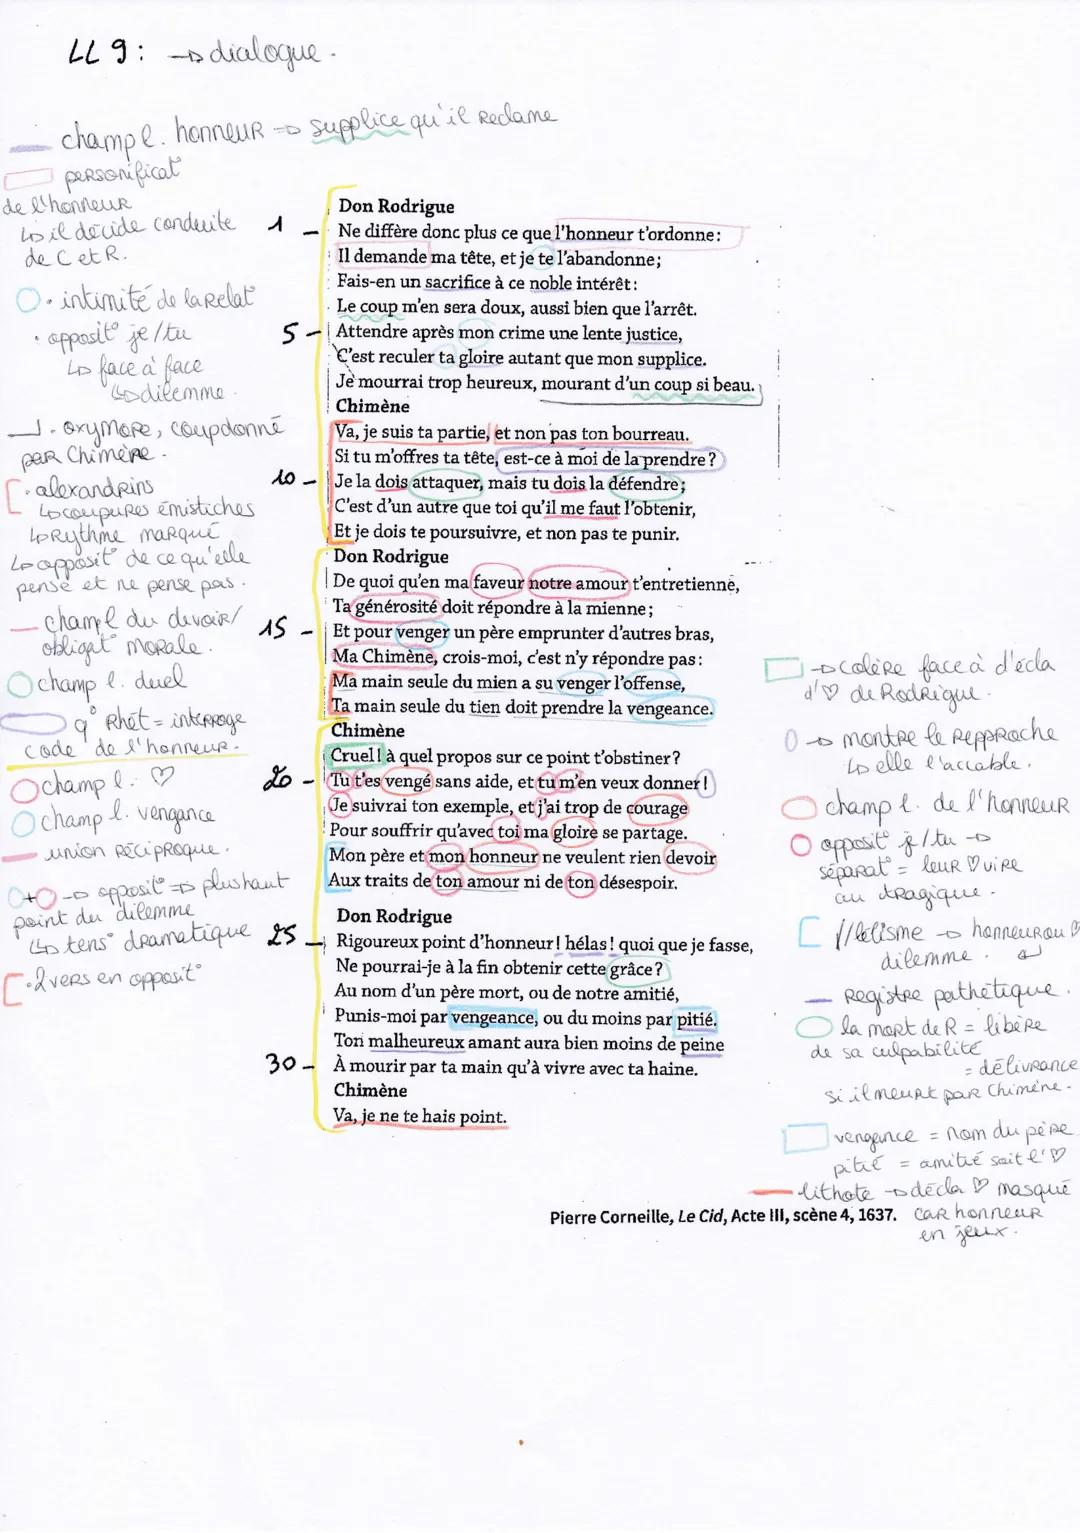 LL 9 : → dialogue.
champ l. honneur → supplice qu'il reclame
personificat°
de l'honneur
↳ il décide conduite
de C et R.
• intimité de la relat°
• opposit° je/tu
↳ face à face
↳ dilemme.
• oxymore, coup donné
par Chimène.
• alexandrins
↳ coupures émistiches
↳ Rythme marqué
↳ opposit° de ce qu'elle
pense et ne pense pas.
champ l du devoir/
obligat° morale.
champ l. duel
q° Rhét = interroge
code de l'honneur.
champ l. ♡
champ l. vengance
union réciproque.
+ → opposit° ⇒ plus haut
point du dilemme
↳ tens° dramatique
• 2 vers en opposit°
Don Rodrigue
1 – Ne diffère donc plus ce que l'honneur t'ordonne :
Il demande ma tête, et je te l'abandonne ;
Fais-en un sacrifice à ce noble intérêt :
Le coup m'en sera doux, aussi bien que l'arrêt.
5 – Attendre après mon crime une lente justice,
C'est reculer ta gloire autant que mon supplice.
Je mourrai trop heureux, mourant d'un coup si beau.
Chimène
Va, je suis ta partie, et non pas ton bourreau.
Si tu m'offres ta tête, est-ce à moi de la prendre ?
10 – Je la dois attaquer, mais tu dois la défendre ;
C'est d'un autre que toi qu'il me faut l'obtenir,
Et je dois te poursuivre, et non pas te punir.
Don Rodrigue
De quoi qu'en ma faveur notre amour t'entretienne,
Ta générosité doit répondre à la mienne ;
15 – Et pour venger un père emprunter d'autres bras,
Ma Chimène, crois-moi, c'est n'y répondre pas :
Ma main seule du mien a su venger l'offense,
Ta main seule du tien doit prendre la vengeance.
Chimène
Cruel ! à quel propos sur ce point t'obstiner ?
20 – Tu t'es vengé sans aide, et tu m'en veux donner !
Je suivrai ton exemple, et j'ai trop de courage
Pour souffrir qu'avec toi ma gloire se partage.
Mon père et mon honneur ne veulent rien devoir
Aux traits de ton amour ni de ton désespoir.
Don Rodrigue
25 – Rigoureux point d'honneur ! hélas ! quoi que je fasse,
Ne pourrai-je à la fin obtenir cette grâce ?
Au nom d'un père mort, ou de notre amitié,
Punis-moi par vengeance, ou du moins par pitié.
Ton malheureux amant aura bien moins de peine
30 – À mourir par ta main qu'à vivre avec ta haine.
Chimène
Va, je ne te hais point.
→ colère face à d'écla
d'♡ de Rodrigue.
→ montre le repproche
↳ elle l'accable.
champ l. de l'honneur
opposit° j/tu →
séparat° = leur ♡ vire
au tragique.
//lélisme → honneur ou ♡
dilemme.
Registre pathétique.
la mort de R = libère
de sa culpabilité
= délivrance
si il meurt par Chimène.
vengence = nom du père
pitié = amitié soit l'♡
lithote → décla ♡ masqué
car honneur
en jeux.
Pierre Corneille, Le Cid, Acte III, scène 4, 1637.